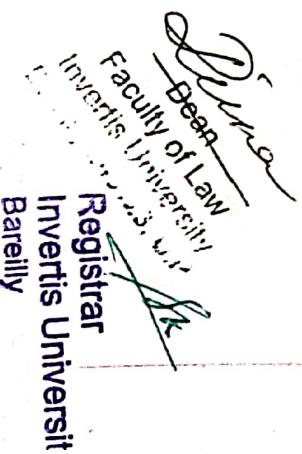 Dean
Faculty of Law
Invertis University
Registrar
Invertis Universit
Bareilly